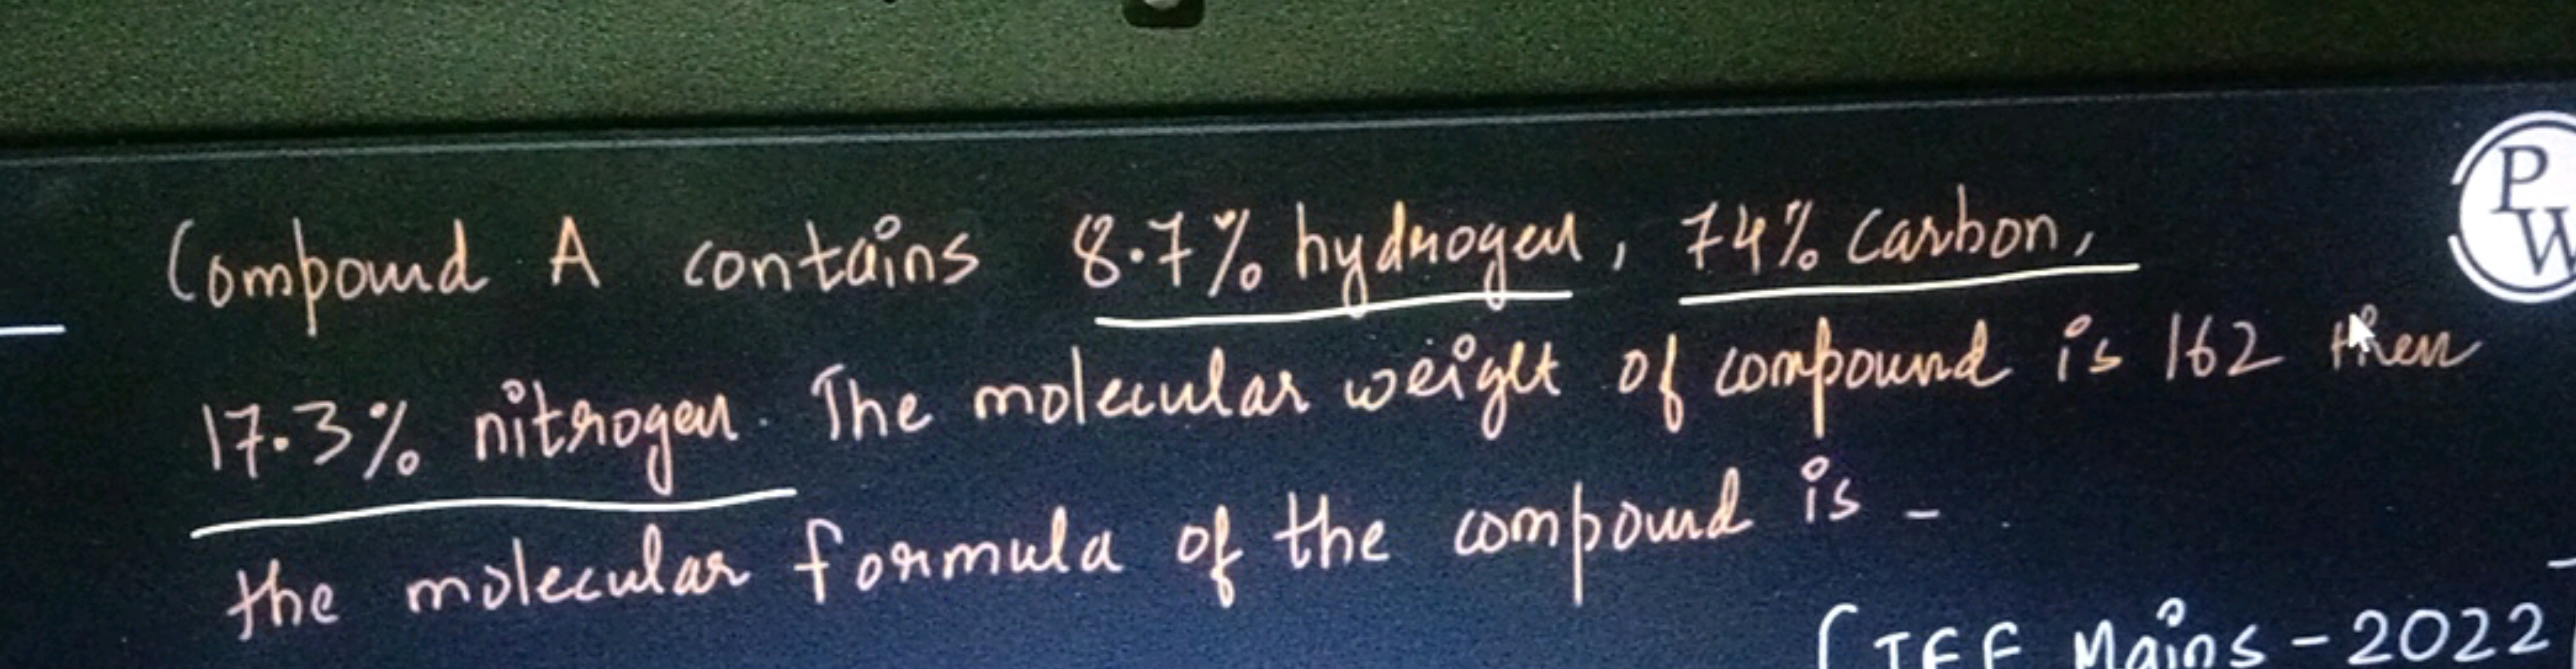 Compound A contains 8.7% hydrogen, 74% Carbon,
P
W
17.3% nitrogen. The molecular weight of compound is 162 then
the molecular formula of the compound is -
(JEE Mains - 2022